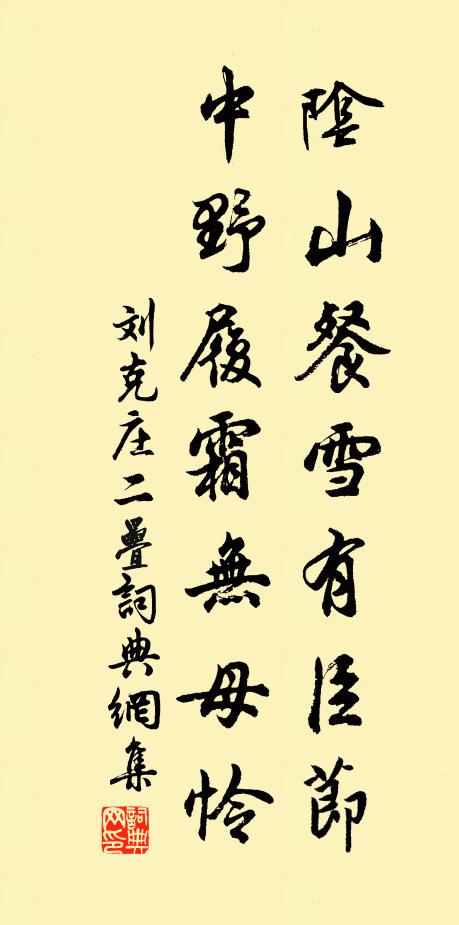 陰山餐雪有臣節
中野履霜無母怜
刘克庄二疊詞典網集
詞典網印